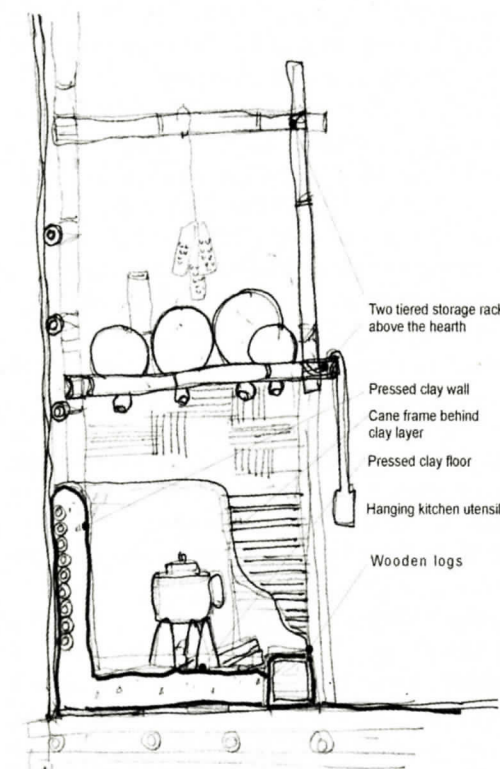 Two tiered storage rack
above the hearth
Pressed clay wall
Cane frame behind
clay layer
Pressed clay floor
Hanging kitchen utensil
Wooden logs